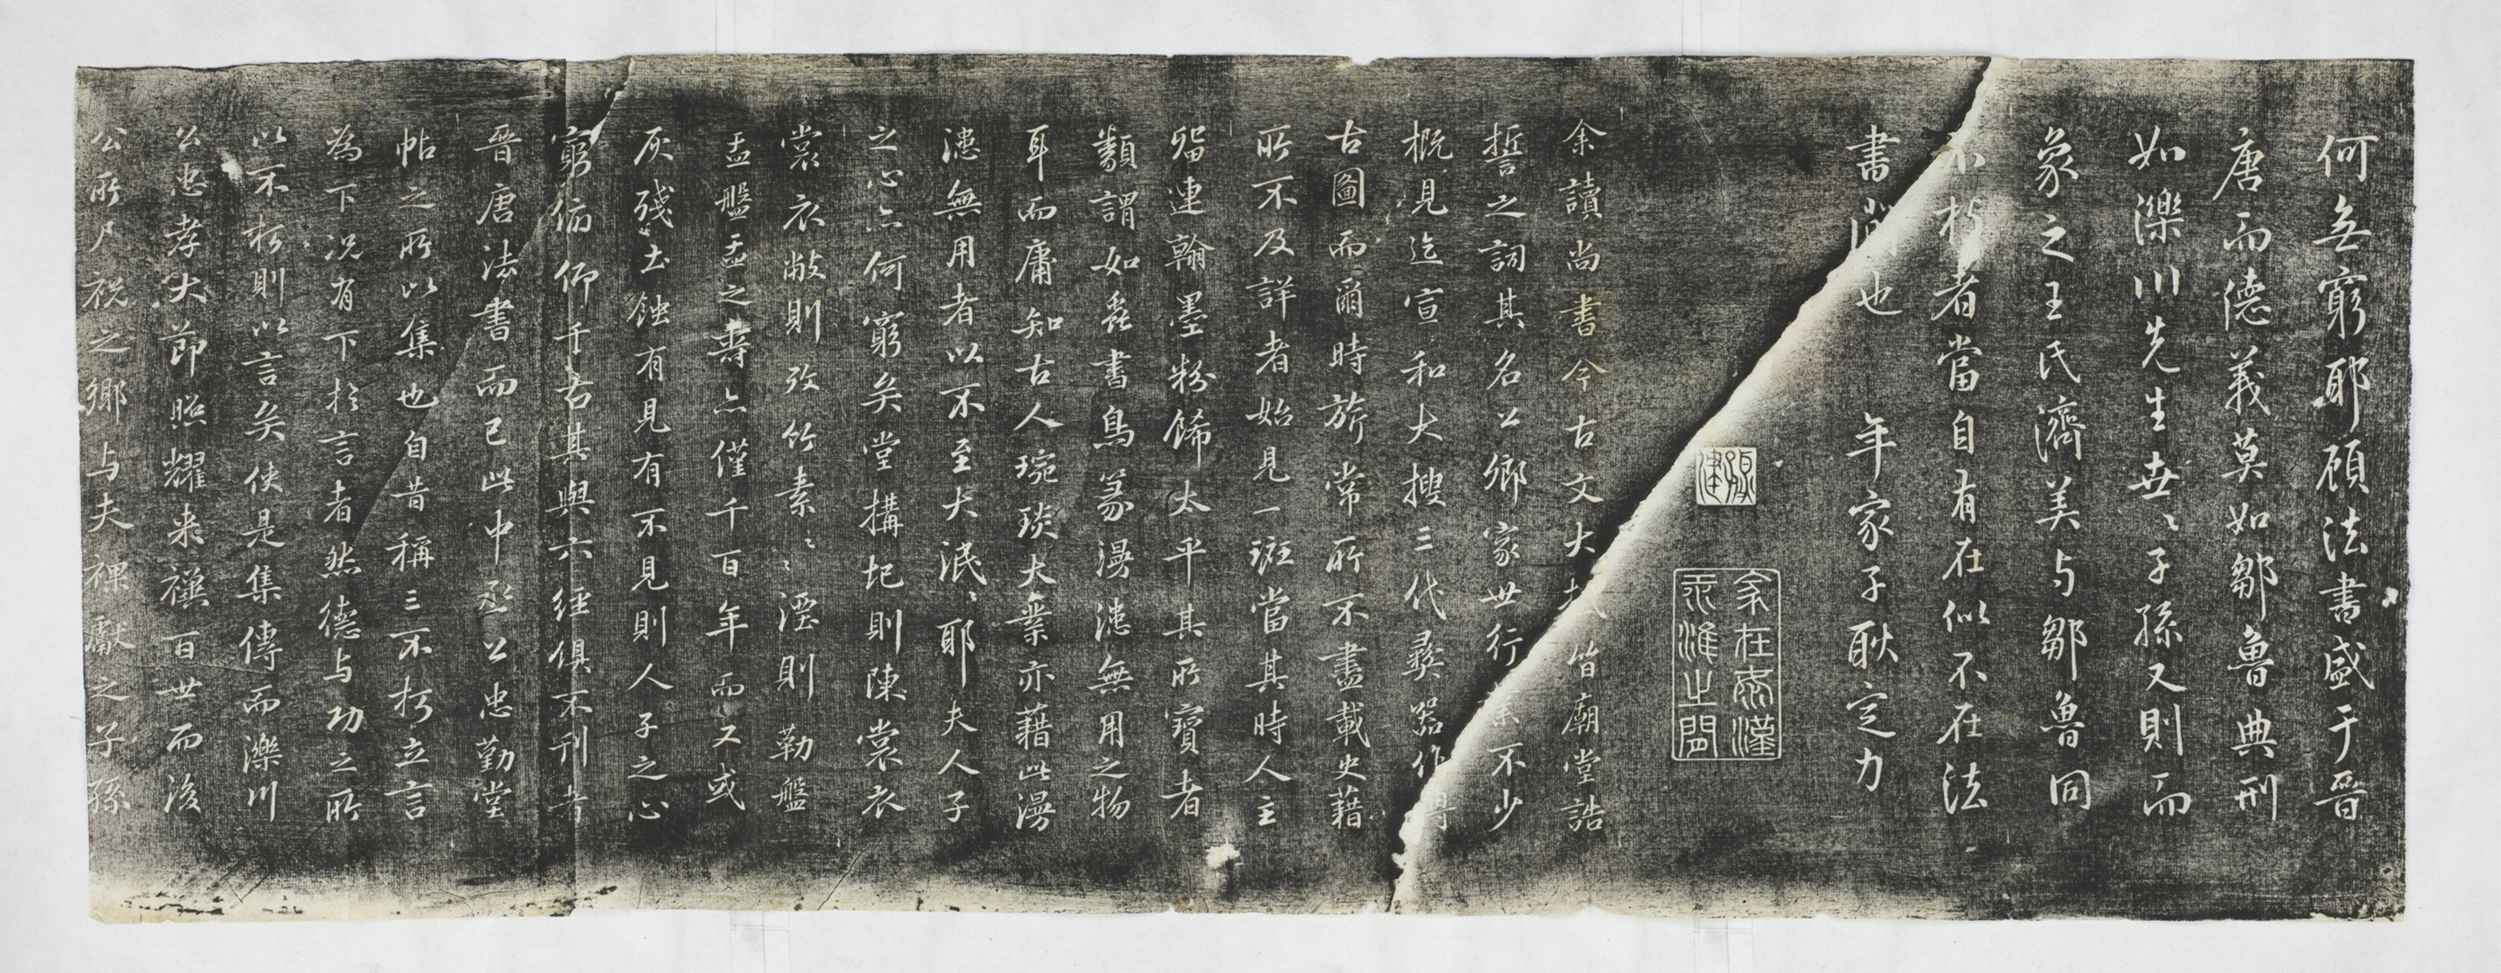 何無窮耶顧法書盛于晉
唐而德義莫如鄒魯典刑
如濼川先生世〻子孫又則而
象之王氏濟美与鄒魯同
不朽者當自有在似不在法
書間也　年家子耿定力
余在泰漢
之間
余讀尚書今古文大抵皆廟堂誥
誓之詞其名公鄉家世行業不少
概見迄宣和大搜三代彝器作得
古圖而爾時旂常所不盡載史藉
所不及詳者始見一斑當其時人主
連翰墨粉餙太平其所寶者
類謂如蟲書鳥篆漫漶無用之物
耳而庸知古人琬琰大業亦藉此漫
漶無用者以不至大泯〻耶夫人子
之心亦何窮矣堂搆圮則陳裳衣
裳衣敝則攷竹素〻〻湮則勒盤
盂盤盂之壽亦僅千百年而又或
灰殘土蝕有見有不見則人子之心
窮俯仰千古其與六經俱不刊者
晉唐法書而已此中丞公忠勤堂
帖之所以集也自昔稱三不朽立言
為下况有下於言者然德与功之所
以不朽則以言矣使是集傳而濼川
公忠孝大節照耀来禩百世而後
公所尸祝之鄉与夫祼獻之子孫